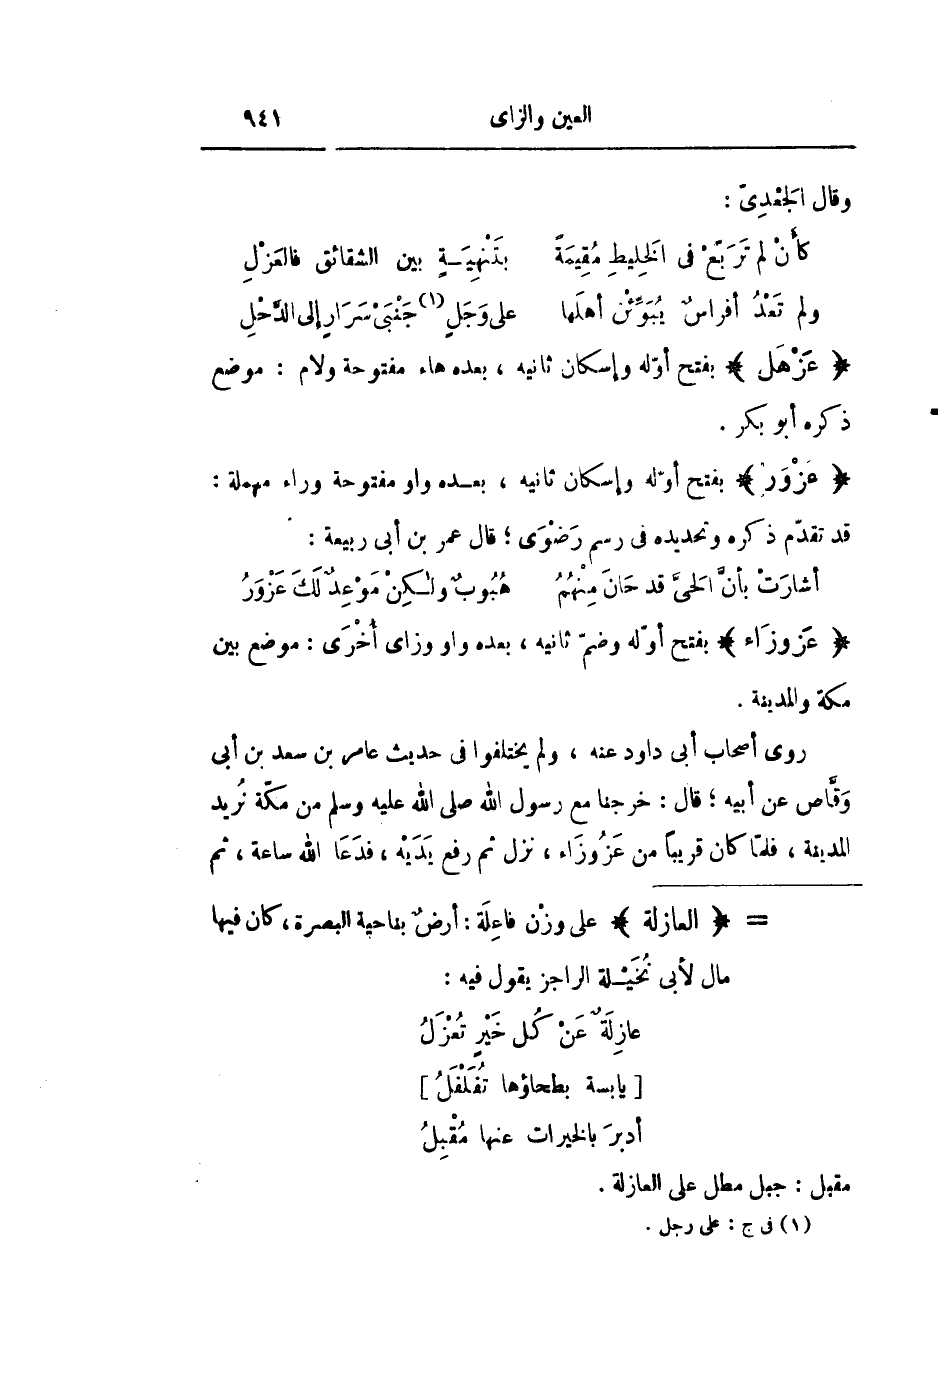 العين والزاى ٩٤١
وقال الجَعْدِىّ :
كأَنْ لم تَرَبَّعْ فى الخَلِيطِ مُقِيمَةً بِتَنْهِيَةٍ بين الشقائق فالعَزْلِ
ولم تَعْدُ أفراسٌ يُبَوِّئْن أهلَها على وَجَلٍ (١) جَنْبَىْ سَرَارٍ إلى الدَّحْلِ
﴿ عَزْهَل ﴾ بفتح أوّله وإسكان ثانيه ، بعده هاء مفتوحة ولام : موضع
ذكره أبو بكر .
﴿ عَزْوَر ﴾ بفتح أوّله وإسكان ثانيه ، بعده واو مفتوحة وراء مهملة :
قد تقدّم ذكره وتحديده فى رسم رَضْوَى ؛ قال عمر بن أبى ربيعة :
أشارَتْ بأنَّ الحىَّ قد حَانَ مِنْهُمُ هُبُوبٌ ولـٰكِنْ مَوْعِدٌ لَكَ عَزْوَرُ
﴿ عَزوزَاء ﴾ بفتح أوّله وضمّ ثانيه ، بعده واو وزاى أُخْرَى : موضع بين
مكة والمدينة .
روى أصحاب أبى داود عنه ، ولم يختلفوا فى حديث عامر بن سعد بن أبى
وَقَّاص عن أبيه ؛ قال : خرجنا مع رسول الله صلى الله عليه وسلم من مكّة نُريد
المدينة ، فلمّا كان قريباً من عَزُوزَاء ، نزل ثم رفع يَدَيْه ، فدَعَا الله ساعة ، ثم
= ﴿ العازلة ﴾ على وزْن فاعِلَة : أرضٌ بناحية البصرة ، كان فيها
مال لأبى نُخَيْـلة الراجز يقول فيه :
عازِلَةٌ عَنْ كُل خَيْرٍ تُعْزَلُ
[ يابسة بطحاؤها تُفَلْفَلُ ]
أدبرَ بالخيرات عنها مُقْبِلُ
مقبل : جبل مطل على العازلة .
(١) فى ج : على رجل .